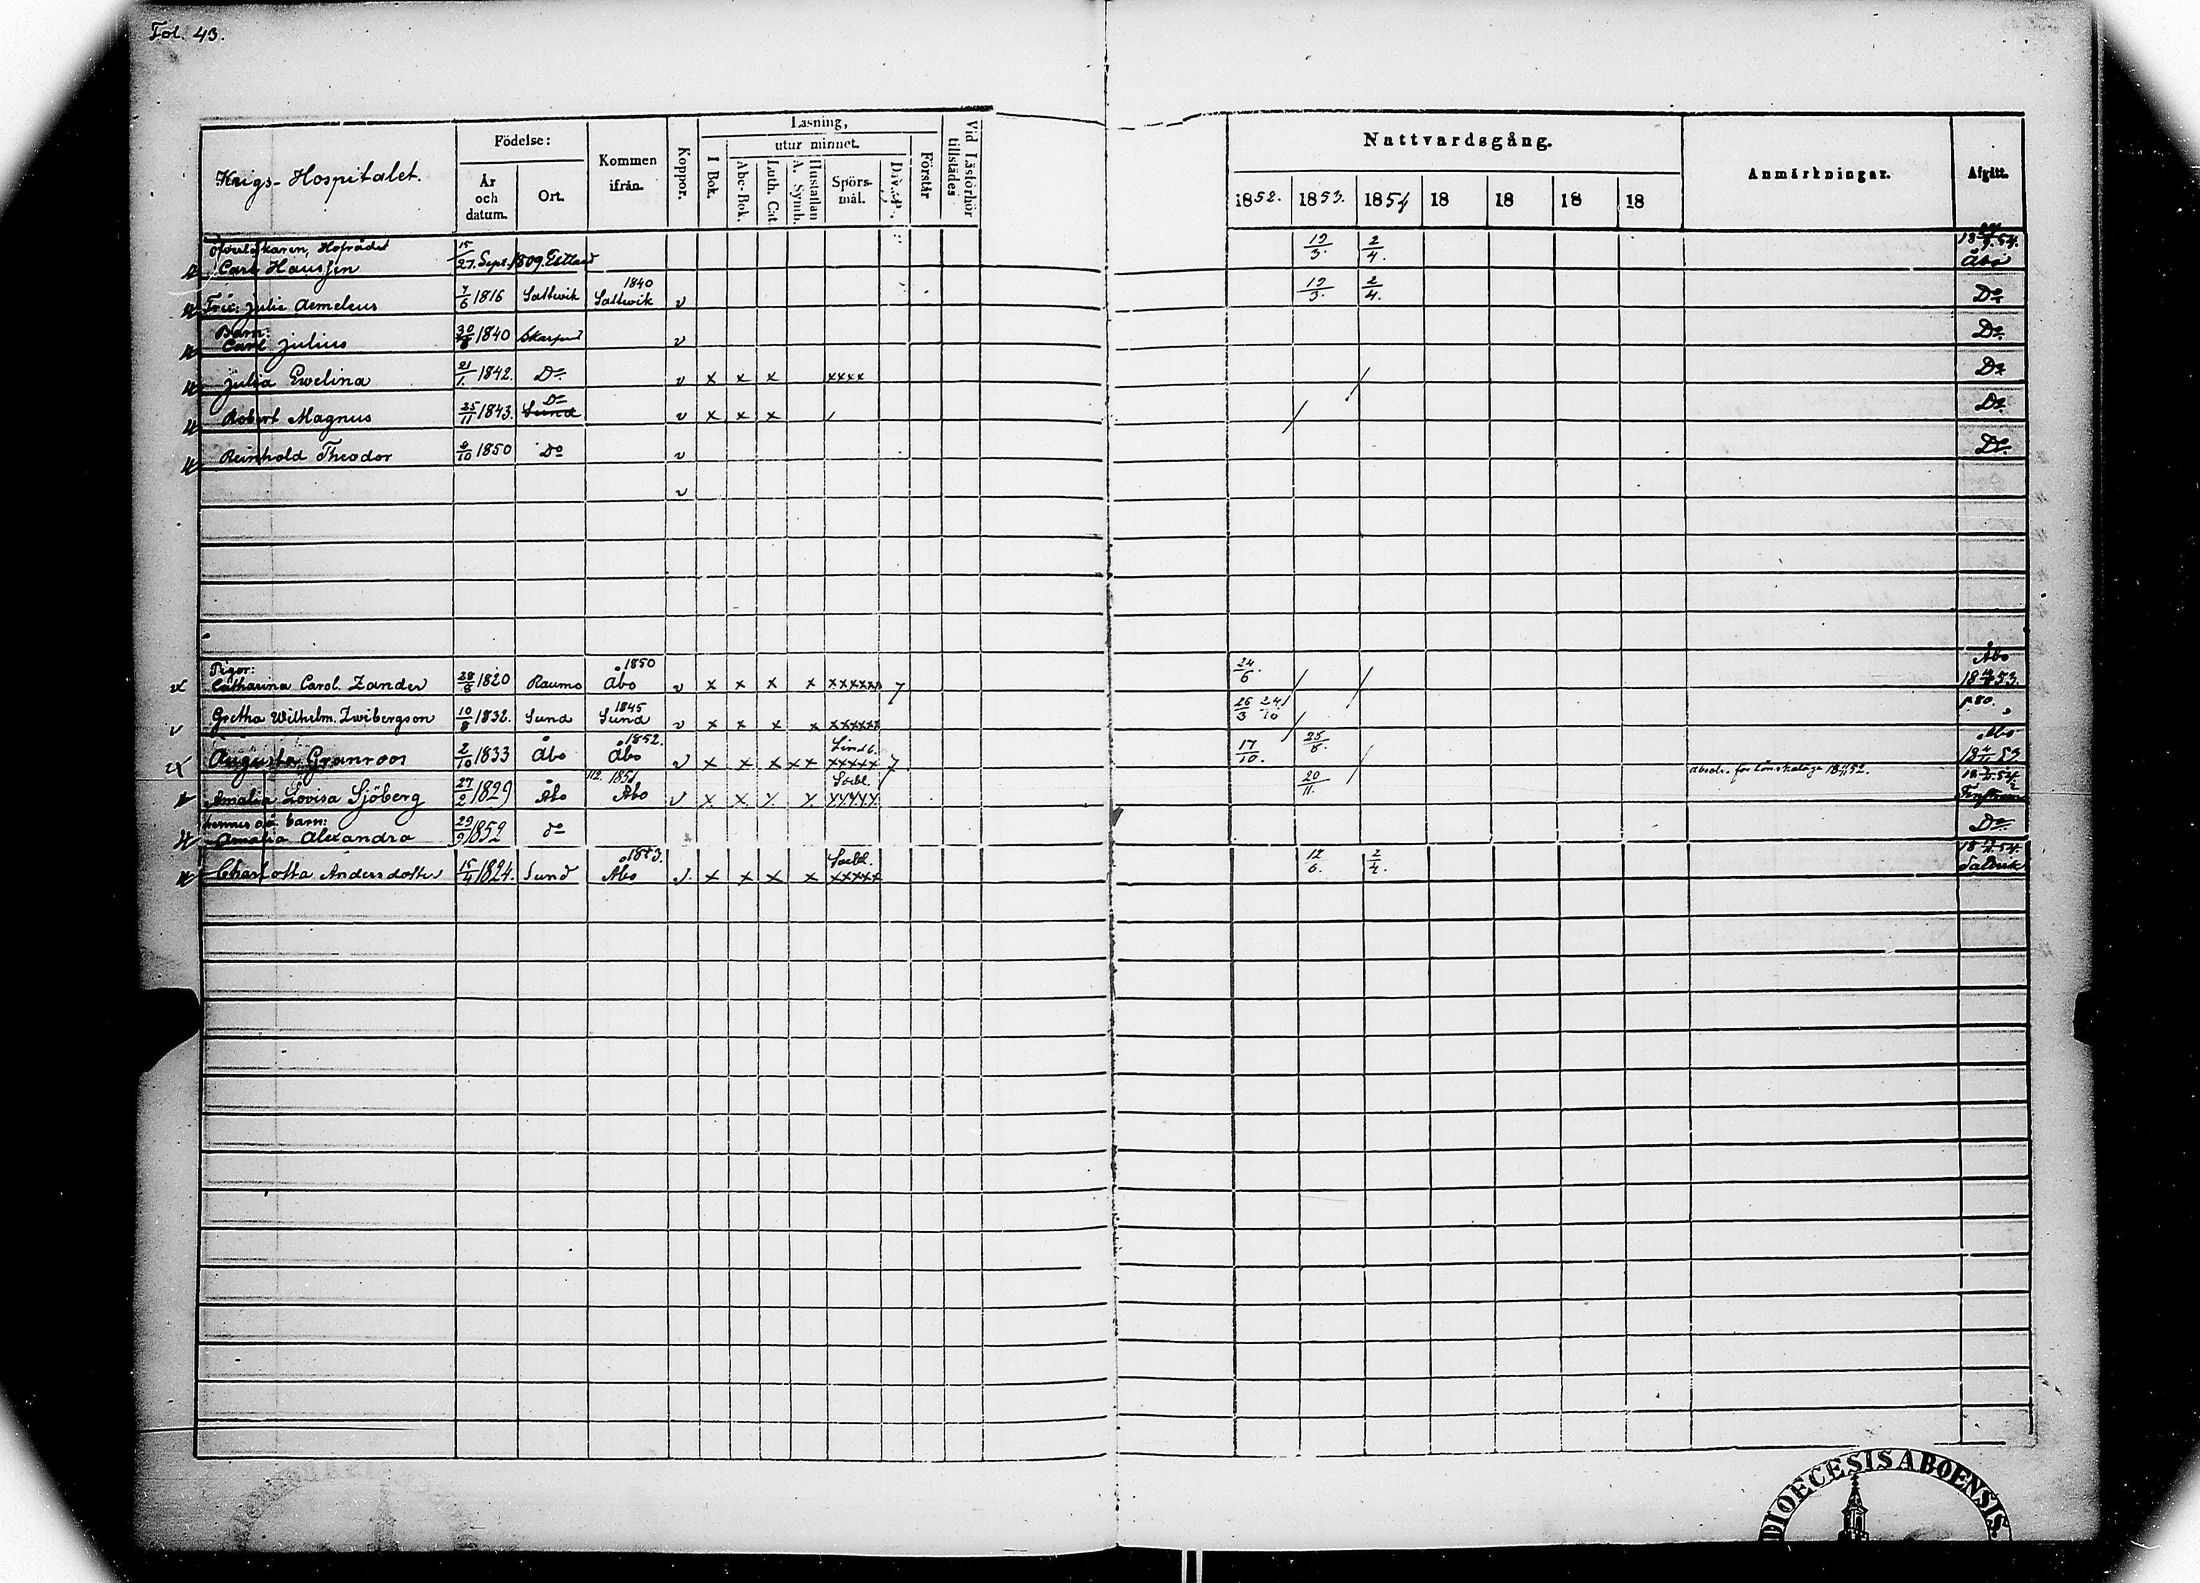 Fol. 43.
Krigs-Hospitalet.
Födelse:
År och datum.
Ort.
Kommen ifrån.
Koppor.
Läsning,
utur minnet.
I Bok.
Abc-Bok.
Luth. Cat.
A. Symb.
Hustaflan
Spörsmål.
Dav. P.
Förstår
Vid Läsförhör tillstädes
Nattvardsgång.
1852. 1853. 1854 18 18 18 18
Anmärkningar.
Afgått.
Öfverläkaren, Hofrådet
Carl Haussen 15/27. Sept. 1809. Estland 19/3. 2/4. Åbo
1840
Fru: Julie Aemeleus 7/6 1816 Saltvik Saltvik v 19/3. 2/4. Do
Barn:
Carl Julius 1840 Skarpans v Do
Julia Ewelina 21/1. 1842. Do v x x x xxxx / Do
Do
Robert Magnus 25/11 1843. Sund v x x x / / Do
Reinhold Theodor 1850 Do v Do
v
Pigor: 1850 Åbo
Catharina Carol. Zander 28/8 1820 Raumo Åbo v x x x x xxxxxx 7 24/6 / / 53.
1845
Gretha Wilhelm. Zwibergson 10/8 1832. Sund Sund v x x x x xxxxxx 26/3 24/10 / p. 80.
1852. Lindb. Åbo
Augusta Granroos 2/10 1833 Åbo Åbo v x x x x x xxxxx 7 17/10. 25/8. / 53
112. 1851 Saebl.
Amalia Lovisa Sjöberg 27/2 1829 Åbo Åbo v x x x x xxxxx 20/11. absolv. för lönskaläge 52.
hennes oä barn:
Amalia Alexandra 29/9 1852 do Do
1853. Saebl. 54.
Charlotta Andersdotter 15/4 1824. Sund Åbo v. x x x x xxxxx 12/6. 2/4. Saltvik
DIOECESIS ABOENSIS.